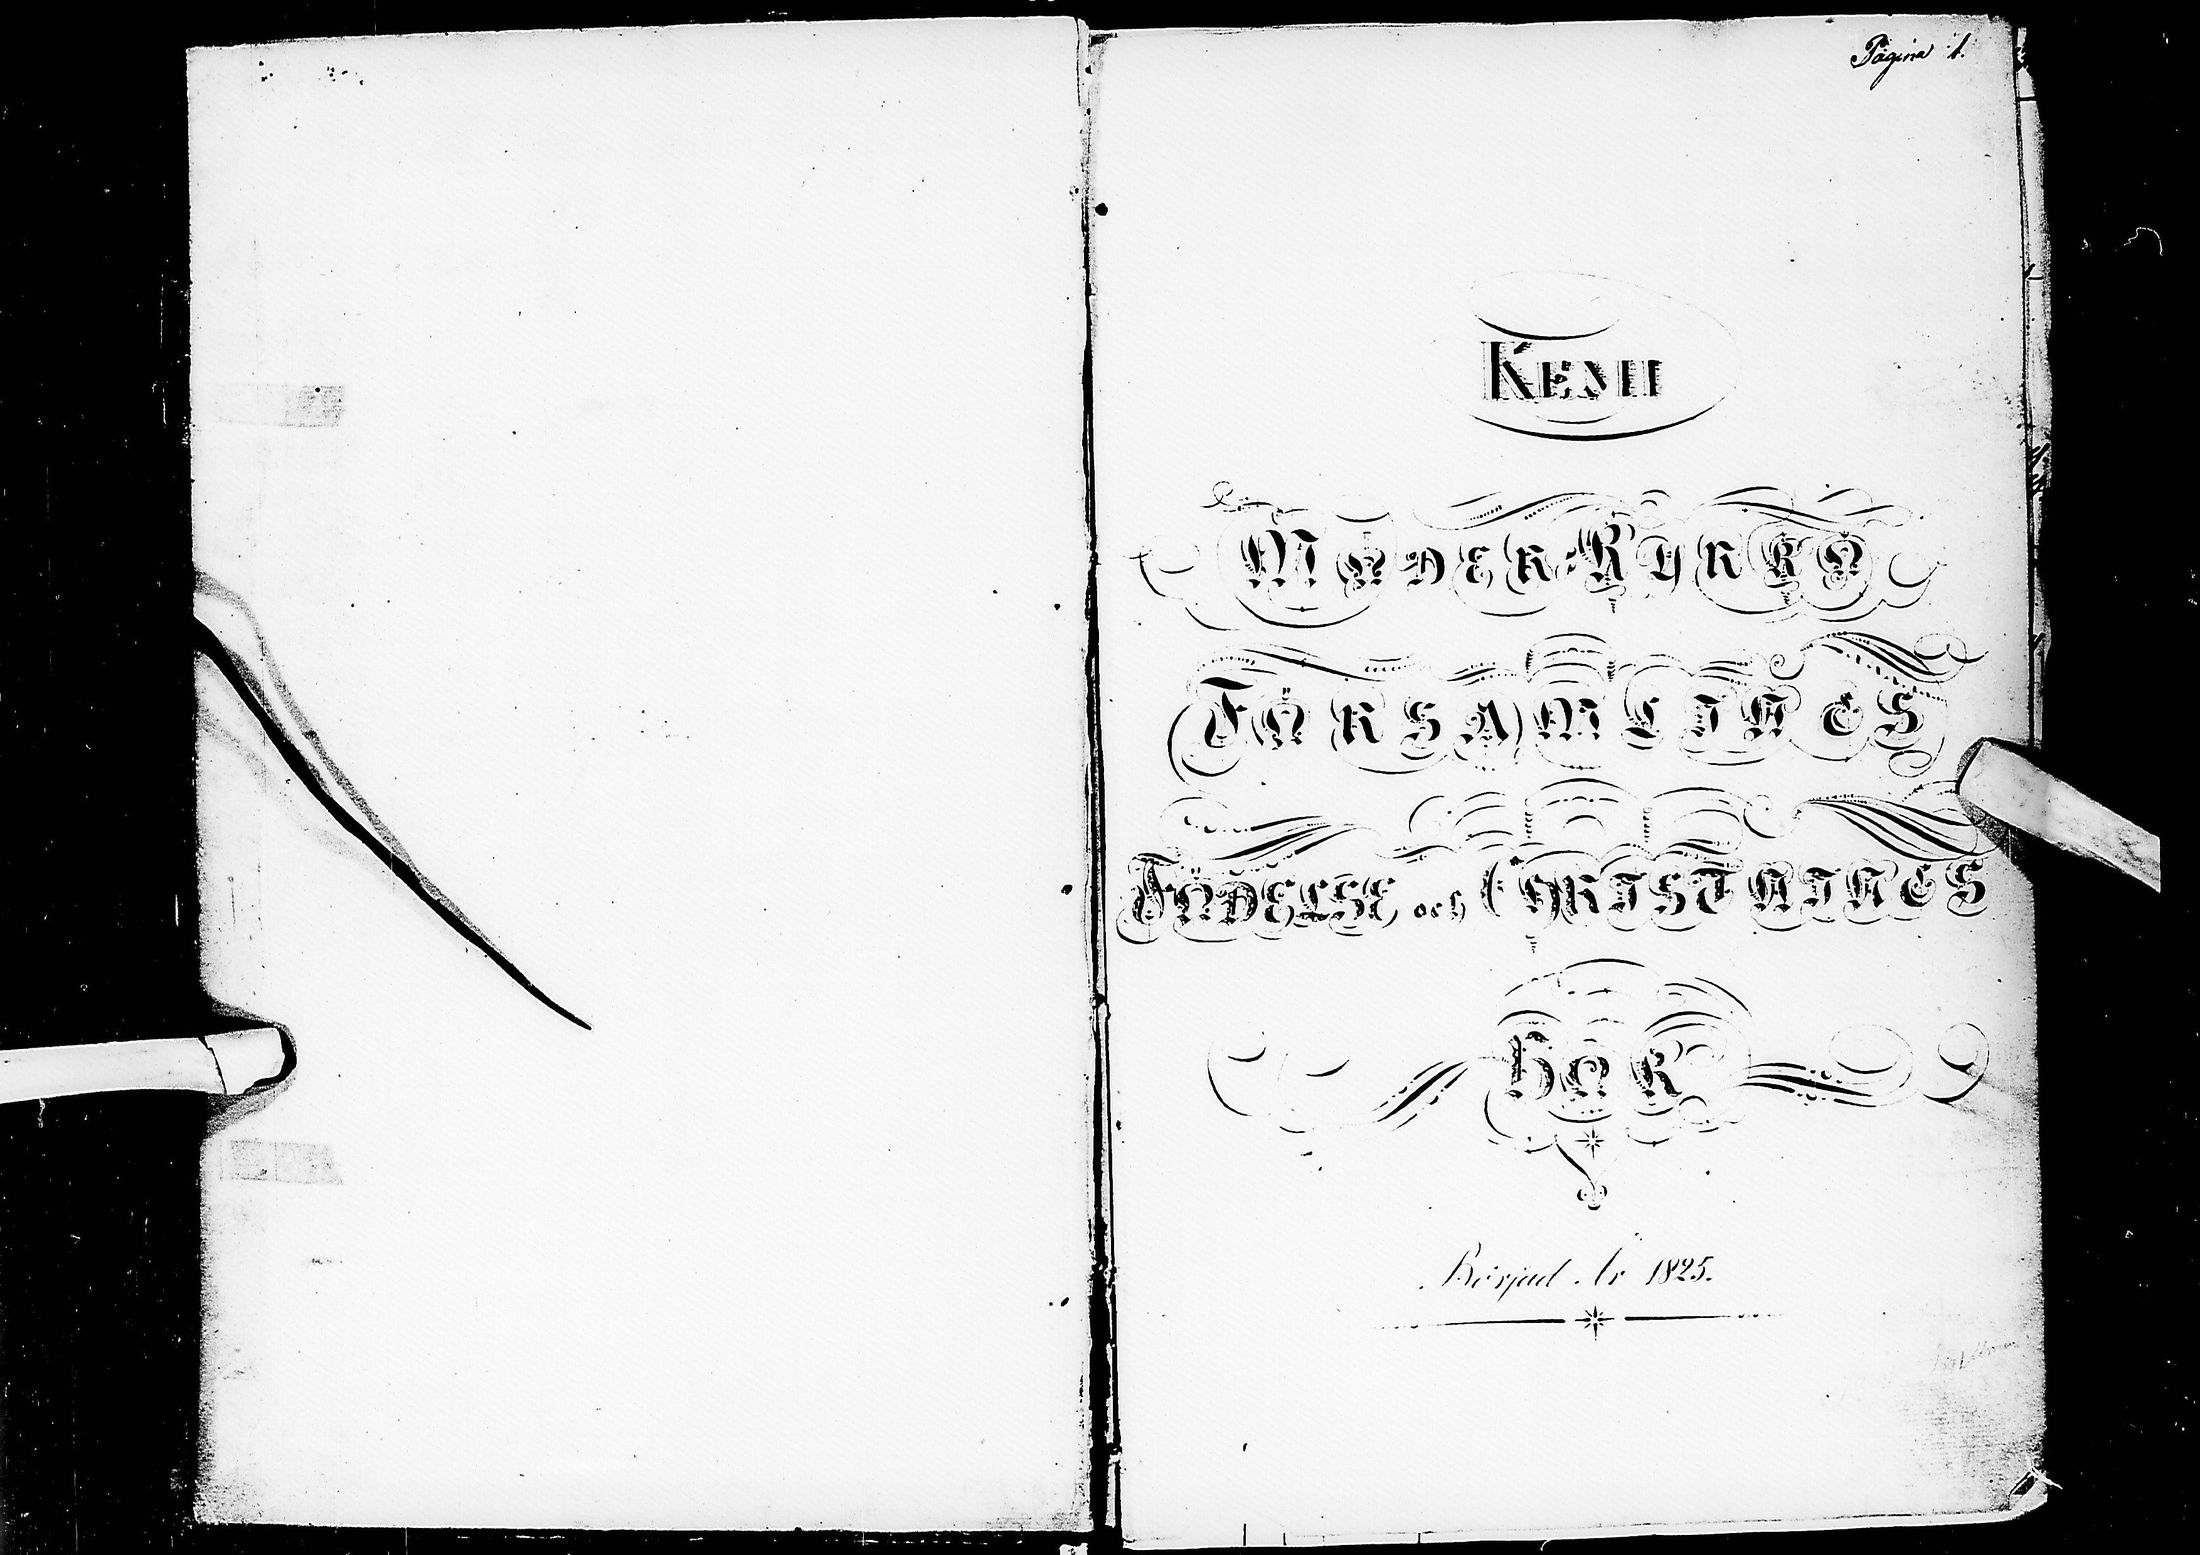 Pagina 1.
KEMI
MODER-KYRKO
FÖRSAMLINGS
FÖDELSE och CHRISTNINGS
BOK
Börjad År 1825.